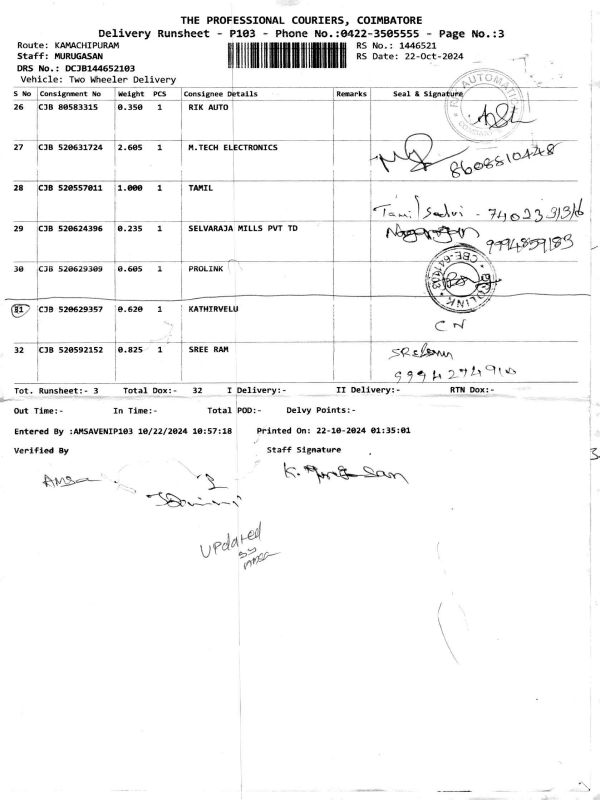 THE PROFESSIONAL COURIERS, COIMBATORE
Delivery Runsheet - P103 - Phone No.:0422-3505555 - Page No.:3
Route: KAMACHIPURAM RS No.: 1446521
Staff: MURUGASAN RS Date: 22-Oct-2024
DRS No.: DCJB144652103
Vehicle: Two Wheeler Delivery
S No Consignment No Weight PCS Consignee Details Remarks Seal & Signature
26 CJB 80583315 0.350 1 RIK AUTO
27 CJB 520631724 2.605 1 M.TECH ELECTRONICS
8608810448
28 CJB 520557011 1.000 1 TAMIL
Tamil Selvi -
29 CJB 520624396 0.235 1 SELVARAJA MILLS PVT TD
9994859183
30 CJB 520629309 0.605 1 PROLINK
PROLINK * CBE-641103 *
31 CJB 520629357 0.620 1 KATHIRVELU
CN
32 CJB 520592152 0.825 1 SREE RAM
9994274910
Tot. Runsheet:- 3 Total Dox:- 32 I Delivery:- II Delivery:- RTN Dox:-
Out Time:- In Time:- Total POD:- Delvy Points:-
Entered By :AMSAVENIP103 10/22/2024 10:57:18 Printed On: 22-10-2024 01:35:01
Verified By Staff Signature
Amsa K. Murugasan
Updated
by
Amsa